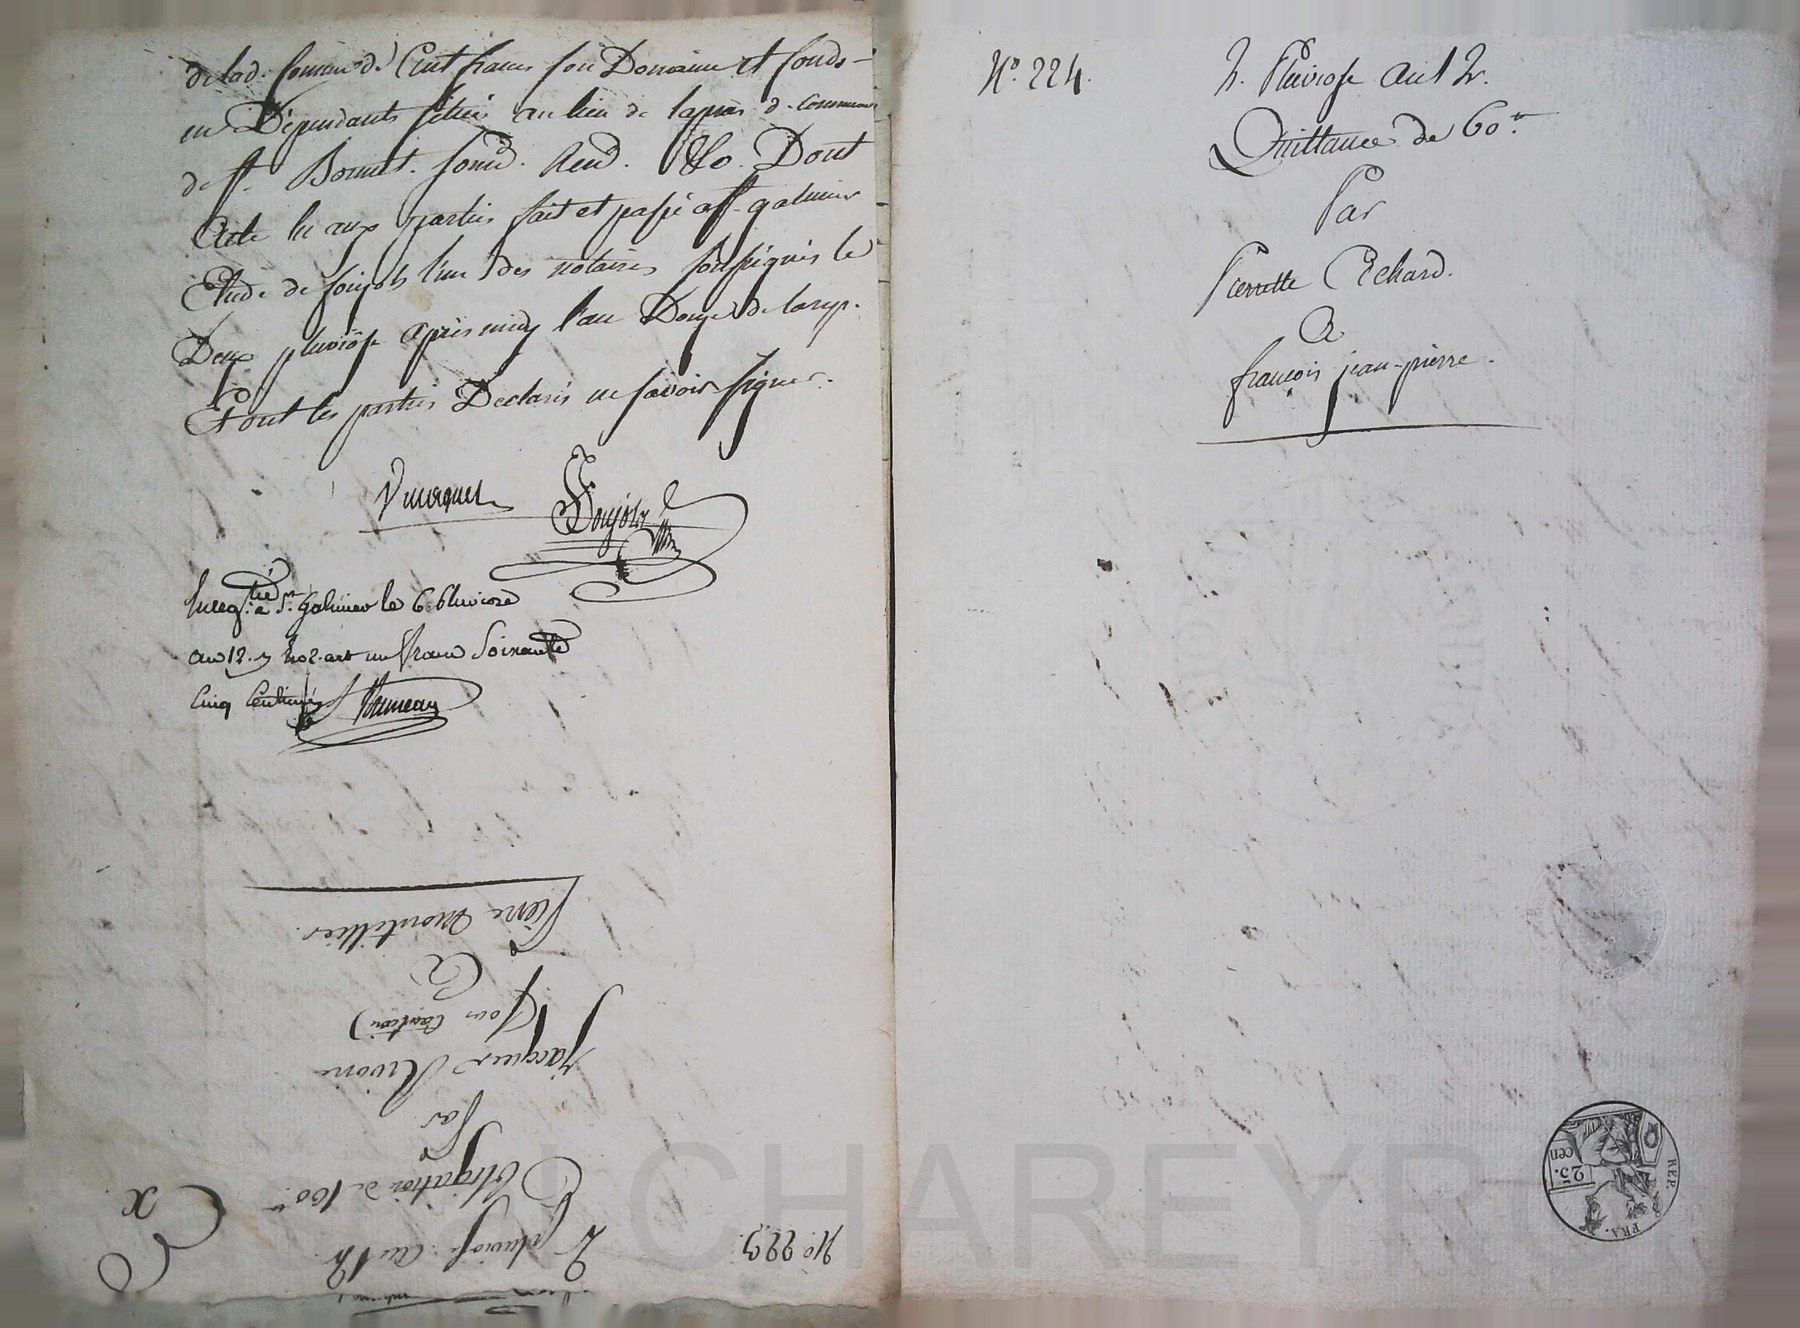 de lad. somme de Cent francs son Domaine et fonds
en Dépendants situés au lieu de commune
de St. Bonnet. Dont
Acte lu aux parties fait et passé a St. galmier
Etude de Soujols l'un des notaires soussignés le
Deux pluviôse après midy l'an Douze de la rep.
Et ont les parties Déclarés ne savoir signer.
Ducroquet Soujols
Enregtré à St Galmier le 6 Pluviose
an 12. un franc Soixante
Cinq Centimes
Pierre Montellier.
A
Jacques
Par
Obligation de 100
2 pluviose an 12
No. 223.
No. 224.
2. Pluviose an 12.
Quittance de 60 tt
Par
Pierrette Richard.
A
françois jean-pierre.
REP. FRA.
25. cen
CHAREYR